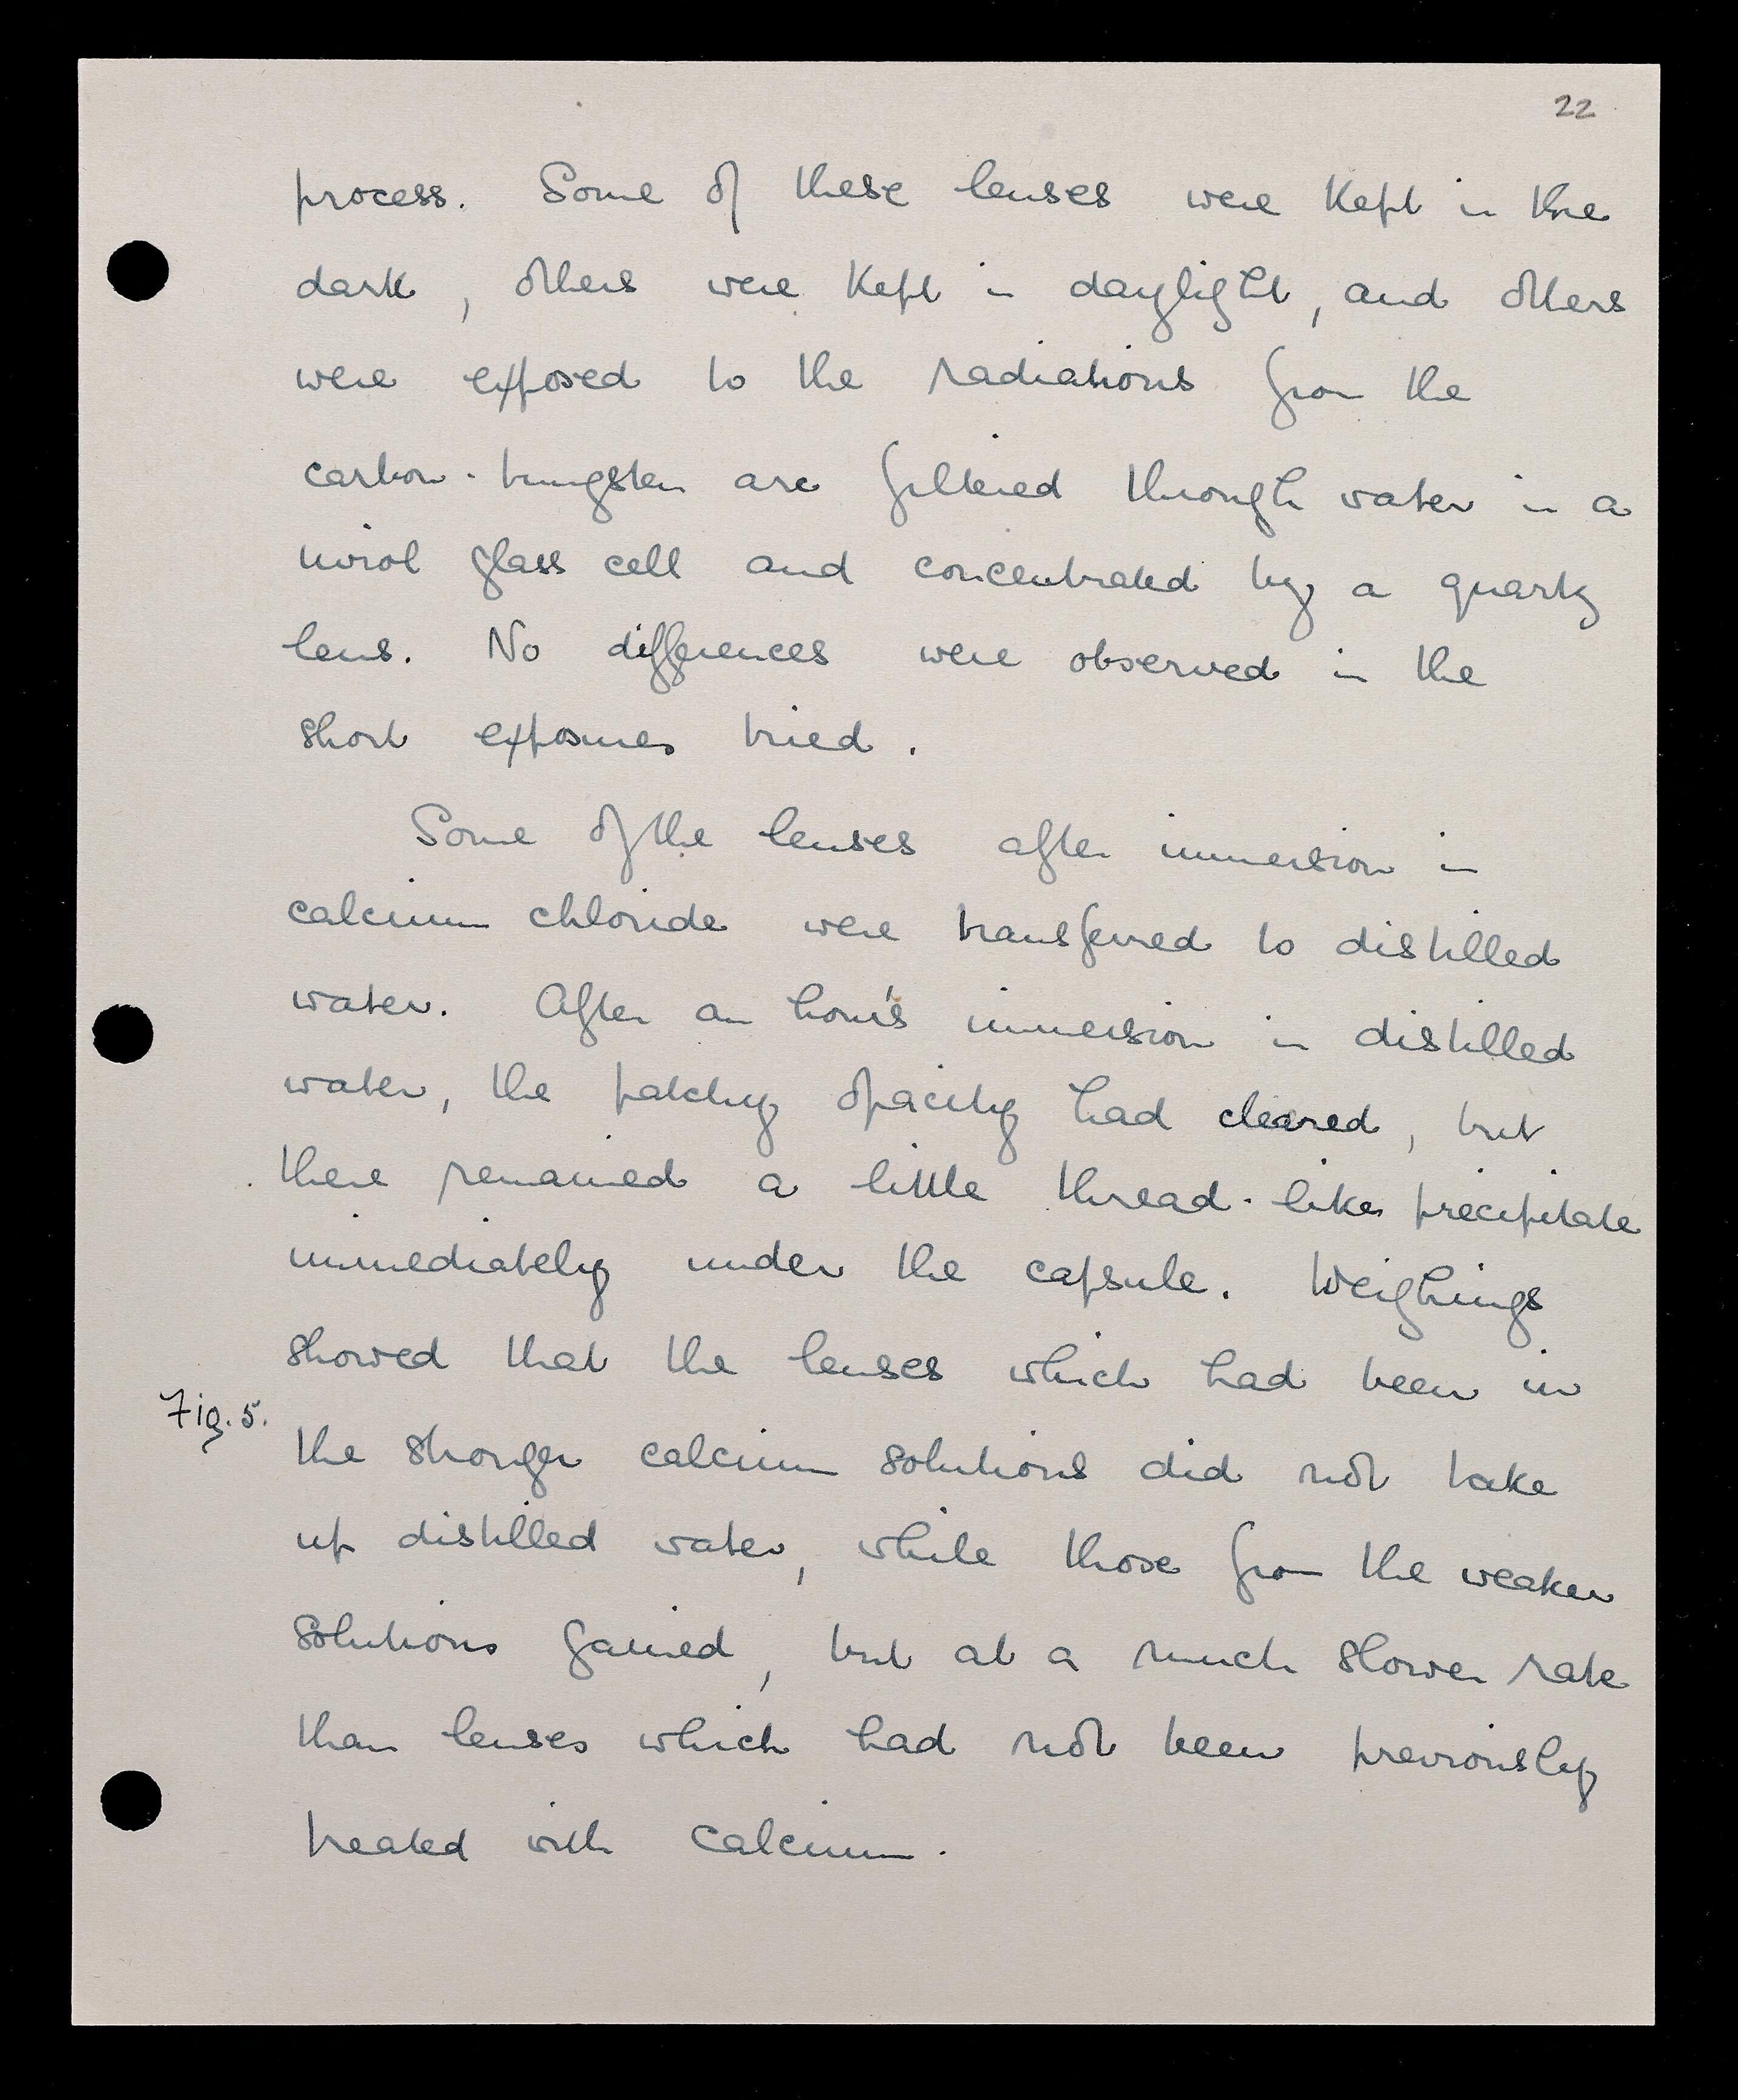 22
process. Some of these lenses were kept in the
dark, others were kept in daylight, and others
were exposed to the radiations from the
carbon-tungsten arc filtered through water in a
uviol glass cell and concentrated by a quartz
lens. No differences were observed in the
short exposures tried.
Some of the lenses after immersion in
calcium chloride were transferred to distilled
water. After an hour's immersion in distilled
water, the patchy opacity had cleared, but
there remained a little thread-like precipitate
immediately under the capsule. Weighings
showed that the lenses which had been in
Fig. 5.
the stronger calcium solutions did not take
up distilled water, while those from the weaker
solutions gained, but at a much slower rate
than lenses which had not been previously
treated with calcium.